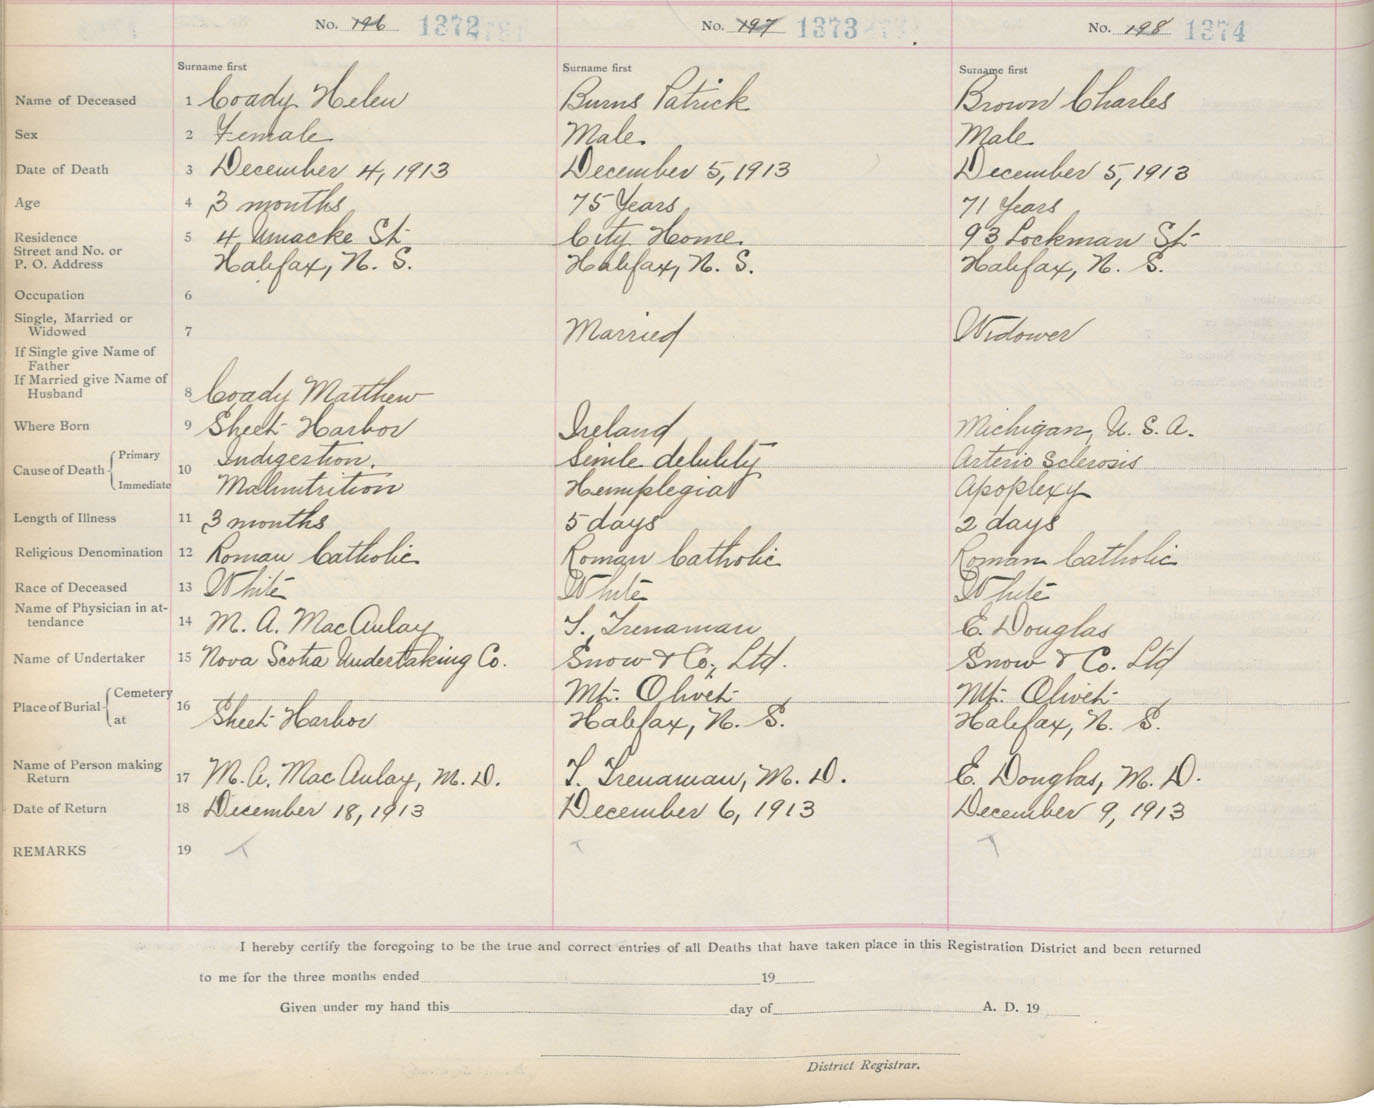 No. 196 1372 No. 197 1373 No. 198 1374
Surname first Surname first Surname first
Name of Deceased 1 Coady Helen Burns Patrick Brown Charles
Sex 2 Female Male. Male
Date of Death 3 December 4, 1913 December 5, 1913 December 5, 1913
Age 4 3 months 75 Years 71 Years
Residence 5 4 Umacke St. City Home. 93 Lockman St.
Street and No. or
P. O. Address Halifax, N. S. Halifax, N. S. Halifax, N. S.
Occupation 6
Single, Married or
Widowed 7 Married Widower
If Single give Name of
Father
If Married give Name of
Husband 8 Coady Matthew
Where Born 9 Sheet Harbor Ireland Michigan, U. S. A.
Cause of Death Primary 10 Indigestion. Senile debility Arterio Sclerosis
Immediate Malnutrition Hemiplegia Apoplexy
Length of Illness 11 3 months 5 days 2 days
Religious Denomination 12 Roman Catholic Roman Catholic Roman Catholic
Race of Deceased 13 White White White
Name of Physician in at-
tendance 14 M. A. MacAulay T. Trenaman E. Douglas
Name of Undertaker 15 Nova Scotia Undertaking Co. Snow & Co., Ltd. Snow & Co. Ltd
Place of Burial Cemetery 16 Mt. Olivet Mt. Olivet
at Sheet Harbor Halifax, N. S. Halifax, N. S.
Name of Person making
Return 17 M. A. MacAulay, M. D. T. Trenaman, M. D. E. Douglas, M. D.
Date of Return 18 December 18, 1913 December 6, 1913 December 9, 1913
REMARKS 19
I hereby certify the foregoing to be the true and correct entries of all Deaths that have taken place in this Registration District and been returned
to me for the three months ended 19
Given under my hand this day of A. D. 19
District Registrar.